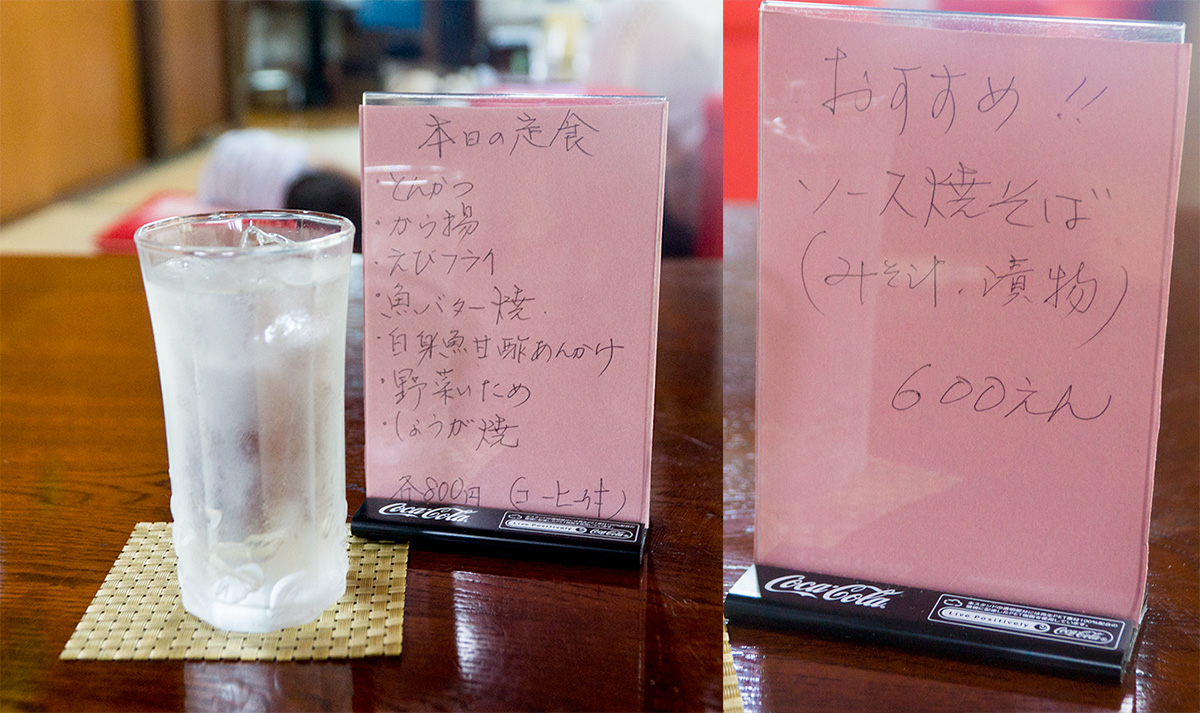 本日の定食
・とんかつ
・から揚
・えびフライ
・魚バター焼
・白身魚甘酢あんかけ
・野菜いため
・しょうが焼
各800円 (コーヒー付)
Coca-Cola
Live Positively
Coca-Cola
おすすめ!!
ソース焼そば
(みそ汁.漬物)
600えん
Coca-Cola
Live Positively
Coca-Cola